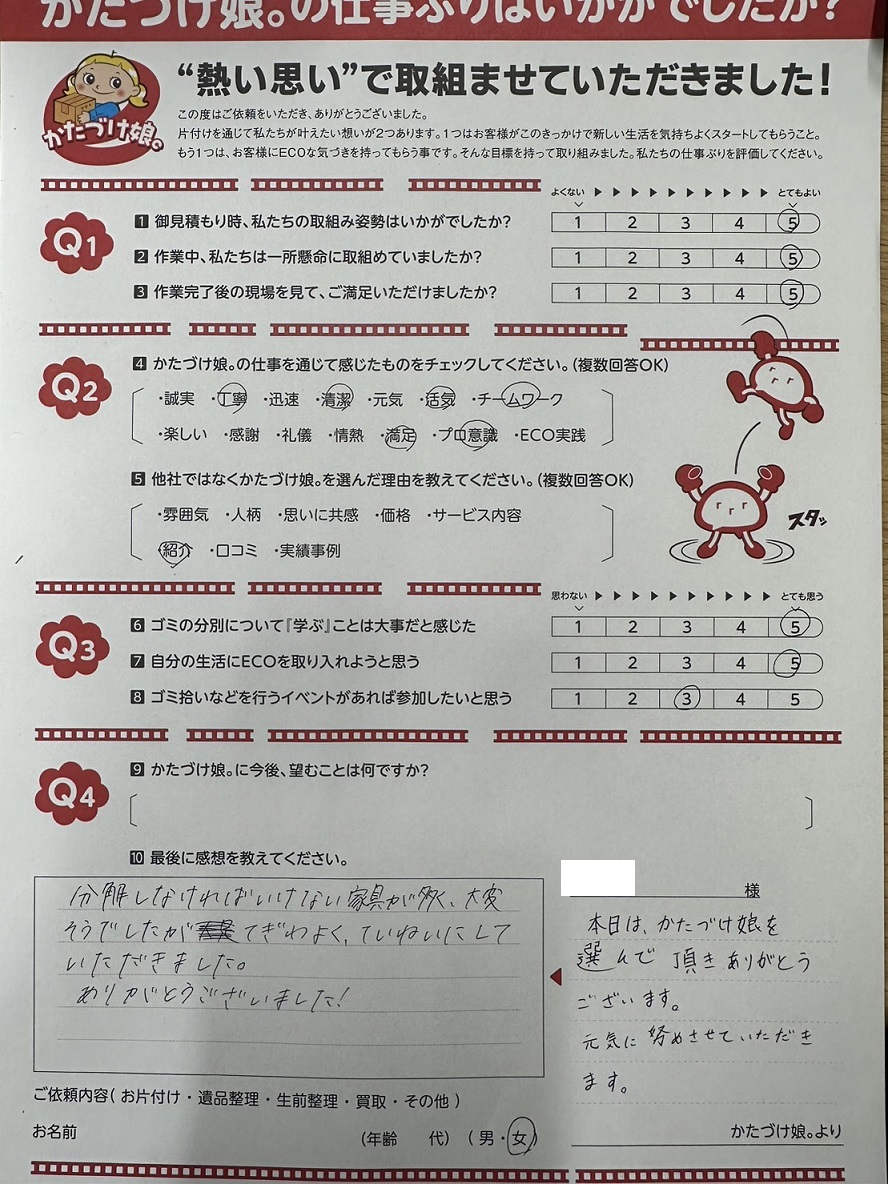 かたづけ娘。の仕事ぶりはいかがでしたか?
かたづけ娘。
“熱い思い”で取組ませていただきました!
この度はご依頼をいただき、ありがとうございました。
片付けを通じて私たちが叶えたい想いが2つあります。1つはお客様がこのきっかけで新しい生活を気持ちよくスタートしてもらうこと。
もう1つは、お客様にECOな気づきを持ってもらう事です。そんな目標を持って取り組みました。私たちの仕事ぶりを評価してください。
よくない ▶ ▶ ▶ ▶ ▶ ▶ ▶ ▶ ▶ ▶ とてもよい
Q1
1 御見積もり時、私たちの取組み姿勢はいかがでしたか? 1 2 3 4 5
2 作業中、私たちは一所懸命に取組めていましたか? 1 2 3 4 5
3 作業完了後の現場を見て、ご満足いただけましたか? 1 2 3 4 5
Q2
4 かたづけ娘。の仕事を通じて感じたものをチェックしてください。(複数回答OK)
・誠実 ・丁寧 ・迅速 ・清潔 ・元気 ・活気 ・チームワーク
・楽しい ・感謝 ・礼儀 ・情熱 ・満足 ・プロ意識 ・ECO実践
5 他社ではなくかたづけ娘。を選んだ理由を教えてください。(複数回答OK)
・雰囲気 ・人柄 ・思いに共感 ・価格 ・サービス内容
・紹介 ・口コミ ・実績事例
スタッ
思わない ▶ ▶ ▶ ▶ ▶ ▶ ▶ ▶ ▶ ▶ とても思う
Q3
6 ゴミの分別について『学ぶ』ことは大事だと感じた 1 2 3 4 5
7 自分の生活にECOを取り入れようと思う 1 2 3 4 5
8 ゴミ拾いなどを行うイベントがあれば参加したいと思う 1 2 3 4 5
Q4
9 かたづけ娘。に今後、望むことは何ですか?
10 最後に感想を教えてください。
分解しなければいけない家具が多く、大変
そうでしたが てぎわよく、ていねいにして
いただきました。
ありがとうございました!
様
本日は、かたづけ娘を
選んで頂きありがとう
ございます。
元気に努めさせていただき
ます。
かたづけ娘。より
ご依頼内容( お片付け・遺品整理・生前整理・買取・その他 )
お名前 (年齢 代) ( 男・女)